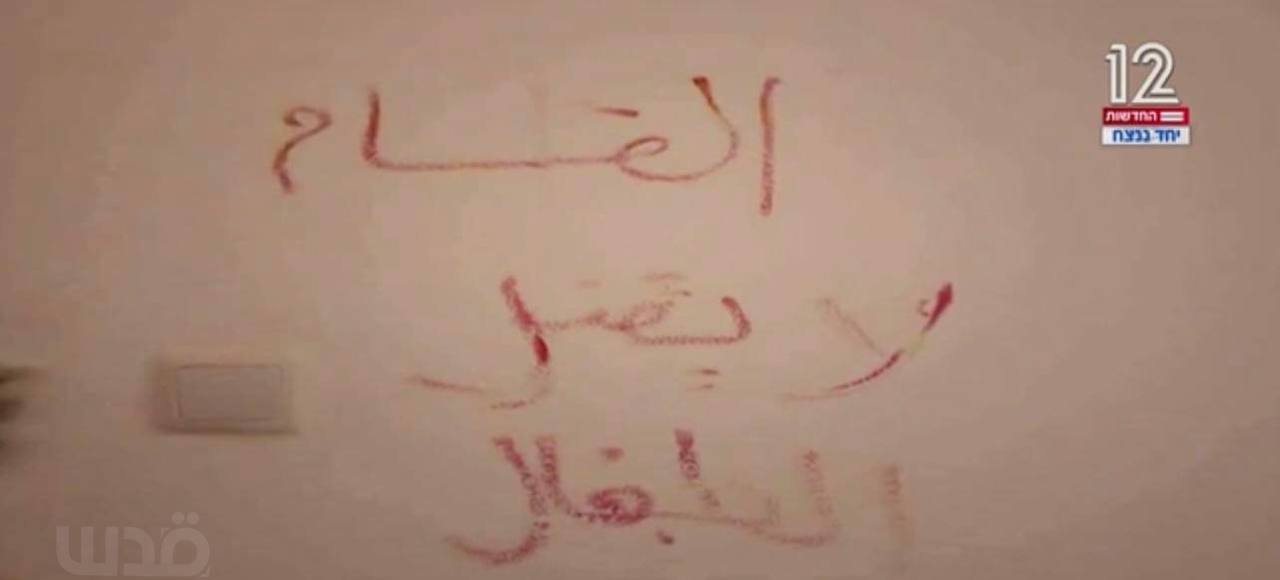 12
החדשות
יחד ננצח
القسام
لا يقتل
الطفال
قدس